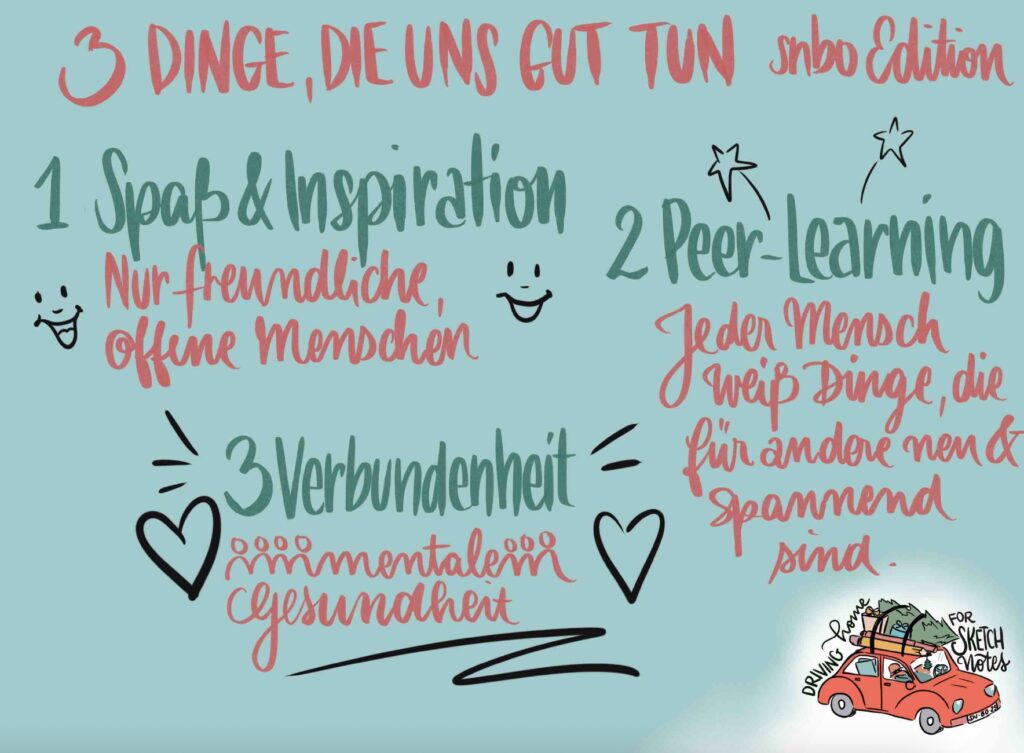 3 DINGE, DIE UNS GUT TUN snbo Edition
1 Spaß & Inspiration
Nur freundliche,
offene Menschen
2 Peer-Learning
Jeder Mensch
weiß Dinge, die
für andere neu &
spannend
sind.
3 Verbundenheit
mentale
Gesundheit
DRIVING home
FOR
SKETCH
notes